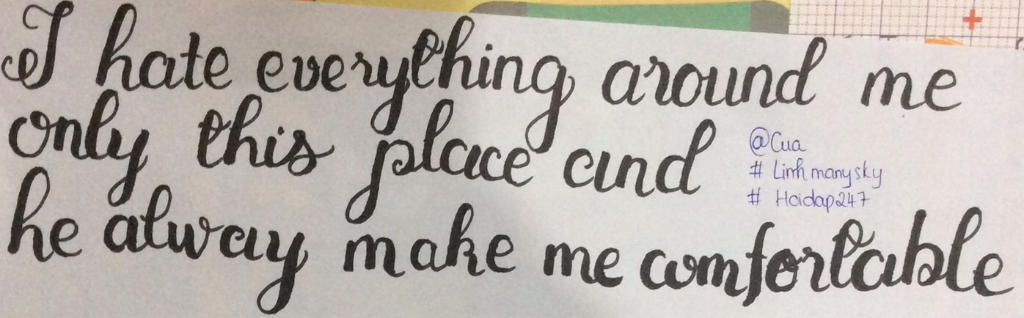 I hate everything around me
only this place and
@Cua
# Linhmanysky
# Hoidap247
he alway make me comfortable